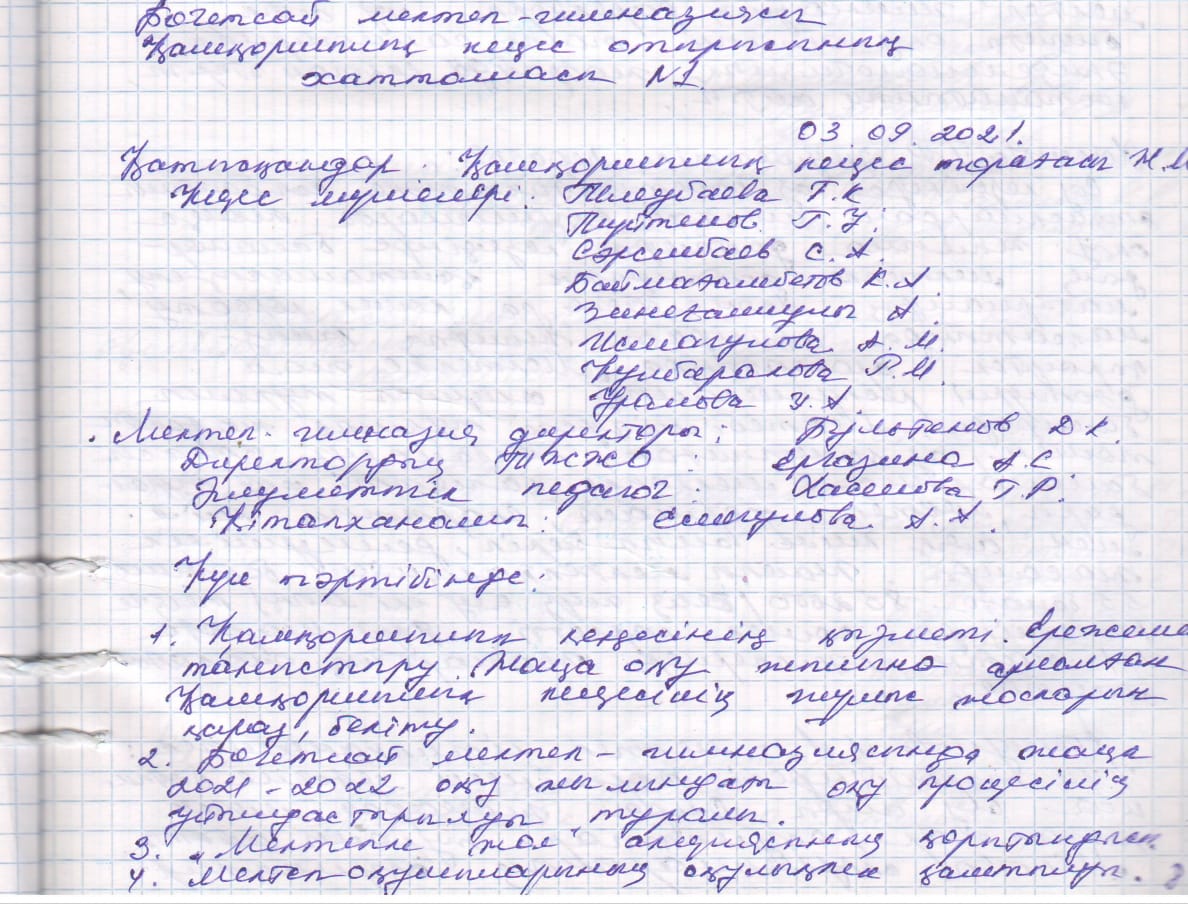 Бөгетсай мектеп-гимназиясы
Қамқоршылық кеңес отырысының
хаттамасы №1.
03.09.2021.
Қатысқандар: Қамқоршылық кеңес төрағасы Н.М
Кеңес мүшелері: Тілеубаева Г.К
Г.У.
Сәрсенбаев С.А.
Баймағамбетов К.А
А.
Исмагулова А.М.
Кулбаракова Р.М.
У.А.
Мектеп-гимназия директоры: Бультенов Д.К.
Директордың ТІЖЖО: Ергазина А.С
Әлуметтік педагог: Хасенова Г.Р.
Кітапханашы: Смагулова А.А.
Күн тәртібінде:
1. Қамқоршылық кеңесінің қызметі. Ережеме
таныстыру. Жаңа оқу жылына арналған
Қамқоршылық кеңесінің жұмыс жоспарын
қарау, бекіту.
2. Бөгетсай мектеп-гимназиясында жаңа
2021-2022 оқу жылындағы оқу процесінің
ұйымдастырылуы туралы.
3. „Мектепке жол" акциясының қорытындысы.
4. Мектеп оқушыларының оқулықпен қамтылуы.